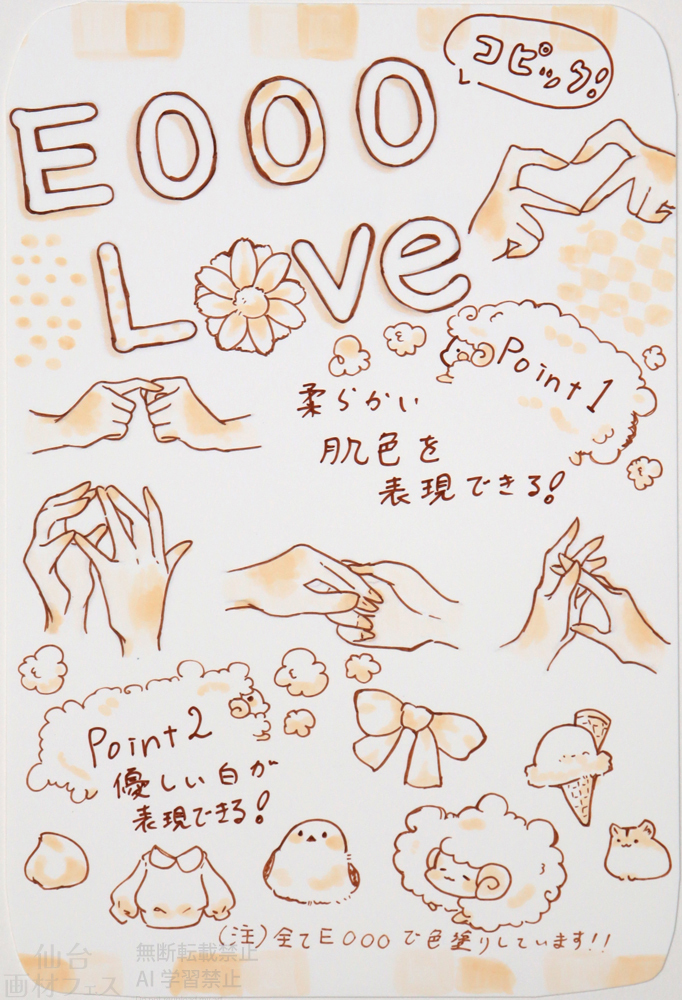 コピック!
E000
Love
Point1
柔らかい
肌色を
表現できる!
Point2
優しい白が
表現できる!
(注)全てE000で色塗りしています!!
仙台
画材フェス
無断転載禁止
AI学習禁止